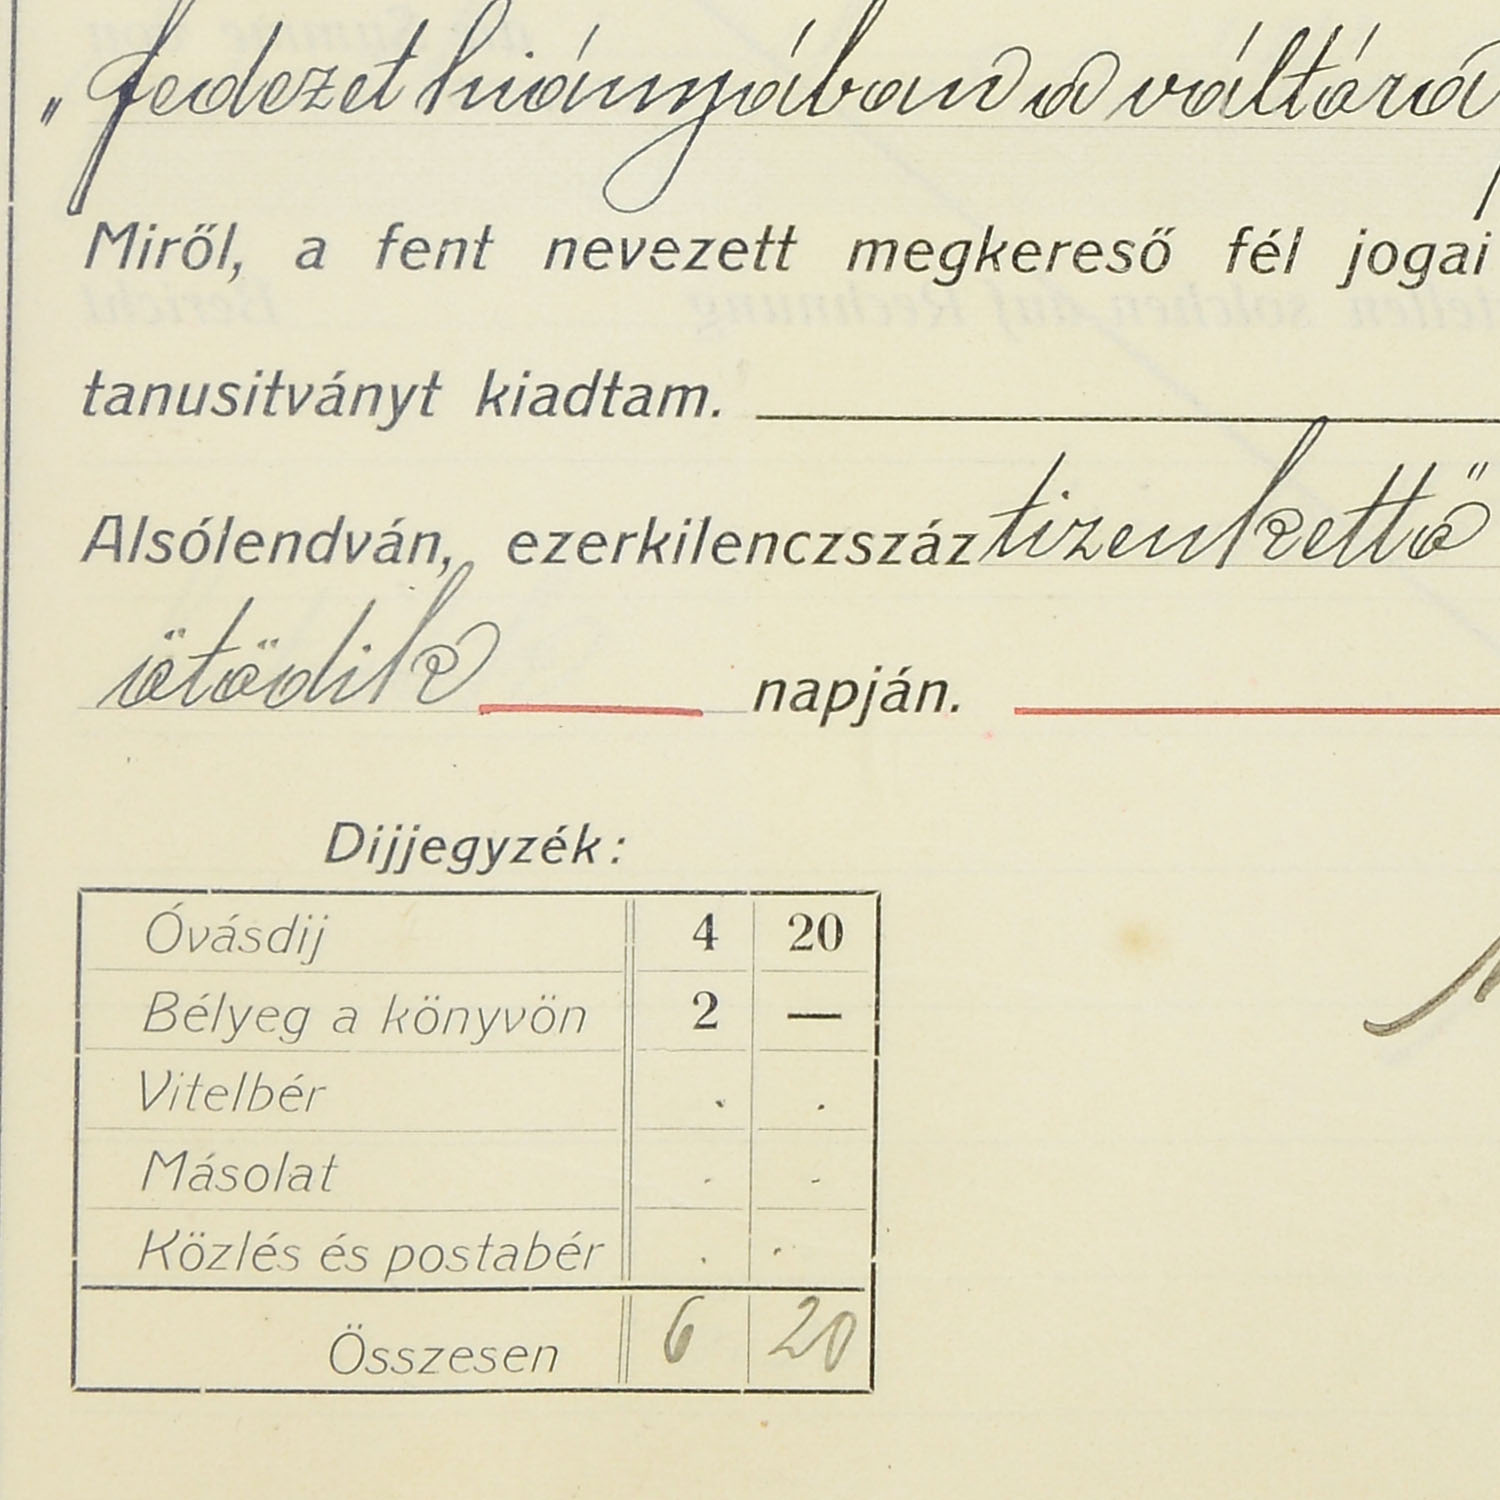 "fedezet hiányában a váltóra
Miről, a fent nevezett megkereső fél jogai
tanusitványt kiadtam.
Alsólendván, ezerkilenczszáz tizenkettő
ötödik napján.
Dijjegyzék:
Óvásdij 4 20
Bélyeg a könyvön 2 —
Vitelbér . .
Másolat . .
Közlés és postabér . .
Összesen 6 20